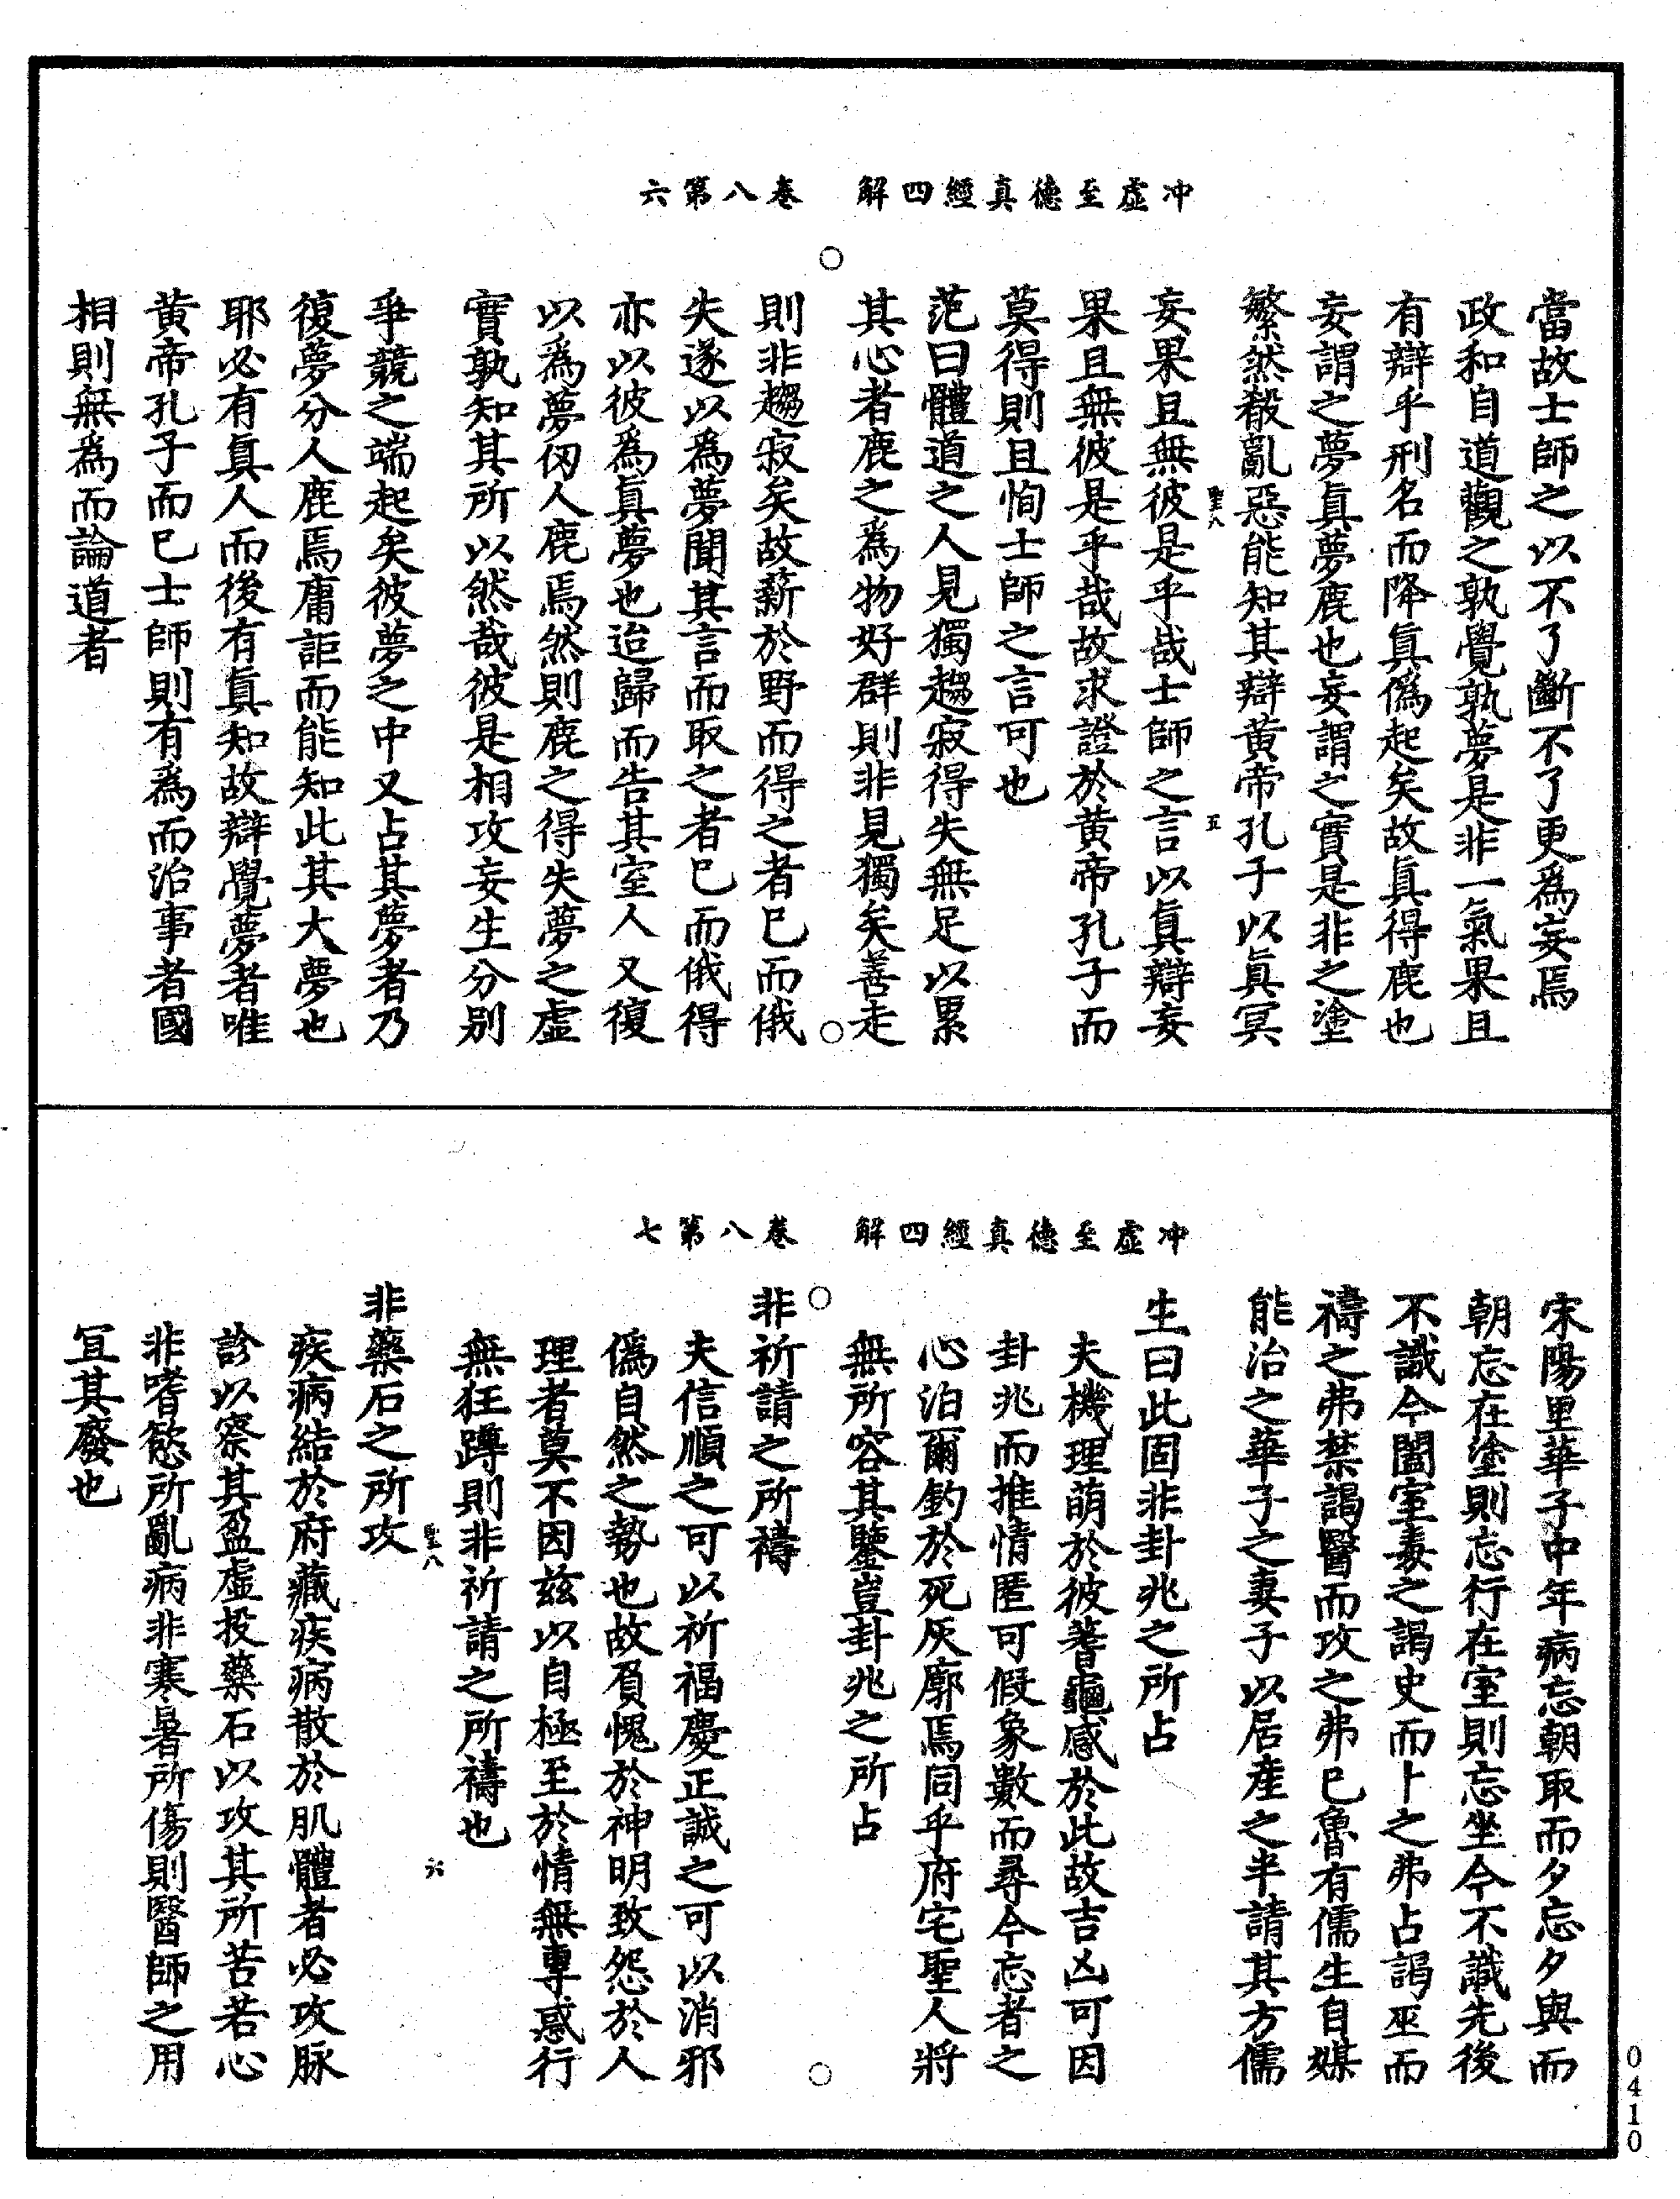 冲虛至德真經四解　卷八第六
當故士師之以不了斷不了更爲妄焉
政和自道觀之孰覺孰夢是非一氣果且
有辯乎刑名而降真僞起矣故真得鹿也
妄謂之夢真夢鹿也妄謂之實是非之塗
繁然殽亂惡能知其辯黄帝孔子以真冥
聖八
五
妄果且無彼是乎哉士師之言以真辯妄
果且無彼是乎哉故求證於黄帝孔子而
莫得則且恂士師之言可也
范曰體道之人見獨趨寂得失無足以累
其心者鹿之爲物好群則非見獨矣善走
則非趨寂矣故薪於野而得之者巳而俄
失遂以爲夢聞其言而取之者巳而俄得
亦以彼爲真夢也迨歸而告其室人又復
以爲夢仞人鹿焉然則鹿之得失夢之虛
實孰知其所以然哉彼是相攻妄生分别
爭競之端起矣彼夢之中又占其夢者乃
復夢分人鹿焉庸詎而能知此其大夢也
耶必有真人而後有真知故辯覺夢者唯
黄帝孔子而巳士師則有爲而治事者國
相則無爲而論道者
冲虛至德真經四解　卷八第七
宋陽里華子中年病忘朝取而夕忘夕與而
朝忘在塗則忘行在室則忘坐今不識先後
不識今闔室毒之謁史而卜之弗占謁巫而
禱之弗禁謁醫而攻之弗巳魯有儒生自媒
能治之華子之妻子以居産之半請其方儒
生曰此固非卦兆之所占
夫機理萌於彼蓍龜感於此故吉凶可因
卦兆而推情匿可假象數而尋今忘者之
心泊爾鈞於死灰廓焉同乎府宅聖人將
無所容其鑒豈卦兆之所占
非祈請之所禱
夫信順之可以祈福慶正誠之可以消邪
僞自然之勢也故負愧於神明致怨於人
理者莫不因兹以自極至於情無專惑行
無狂蹲則非祈請之所禱也
聖八
六
非藥石之所攻
疾病結於府藏疾病散於肌體者必攻脉
診以察其盈虛投藥石以攻其所苦若心
非嗜慾所亂病非寒暑所傷則醫師之用
冝其廢也
0410